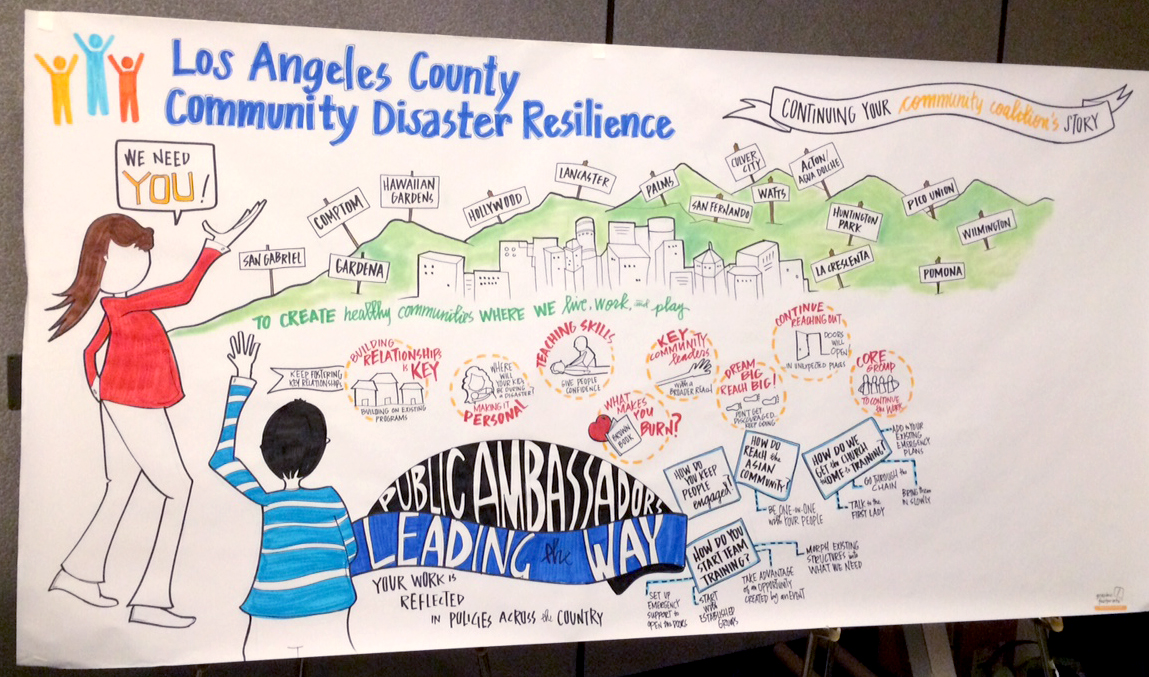 Los Angeles County
Community Disaster Resilience
CONTINUING YOUR community coalition's STORY
WE NEED
YOU!
SAN GABRIEL
COMPTOM
GARDENA
HAWAIIAN
GARDENS
HOLLYWOOD
LANCASTER
PALMS
SAN FERNANDO
CULVER
CITY
WATTS
ACTON/
AGUA DOLCHE
HUNTINGTON
PARK
LA CRESCENTA
PICO UNION
WILMINGTON
POMONA
TO CREATE healthy communities WHERE WE live, work, and play
KEEP FOSTERING
KEY RELATIONSHIPS
BUILDING
RELATIONSHIPS
is KEY
BUILDING ON EXISTING
PROGRAMS
WHERE
WILL
YOUR KEY
BE DURING
A DISASTER?
MAKING IT
PERSONAL
TEACHING SKILLS
GIVE PEOPLE
CONFIDENCE
WHAT MAKES
YOU
BURN?
BROWN
BOOK
KEY
community
leaders
with a
BROADER REACH
DREAM
BIG
REACH BIG!
DON'T GET
DISCOURAGED
KEEP GOING
CONTINUE
REACHING OUT
DOORS
WILL
OPEN
IN UNEXPECTED PLACES
CORE
GROUP
TO CONTINUE
the WORK
PUBLIC AMBASSADORS
LEADING the WAY
YOUR WORK IS
REFLECTED
IN POLICIES ACROSS the COUNTRY
HOW DO
YOU KEEP
PEOPLE
engaged?
HOW DO
WE
REACH the
ASIAN
COMMUNITY?
BE ONE-ON-ONE
with YOUR PEOPLE
HOW DO WE
GET the CHURCH
to COME to TRAINING?
ADD to YOUR
EXISTING
EMERGENCY
PLANS
GO THROUGH the
CHAIN
BRING them
IN SLOWLY
TALK to the
FIRST LADY
HOW DO YOU
START TEAM
TRAINING?
MORPH EXISTING
STRUCTURES into
WHAT WE NEED
TAKE ADVANTAGE
of an OPPORTUNITY
CREATED by an EVENT
START
WITH
ESTABLISHED
GROUPS
SET UP
EMERGENCY
SUPPORT to
OPEN the DOORS